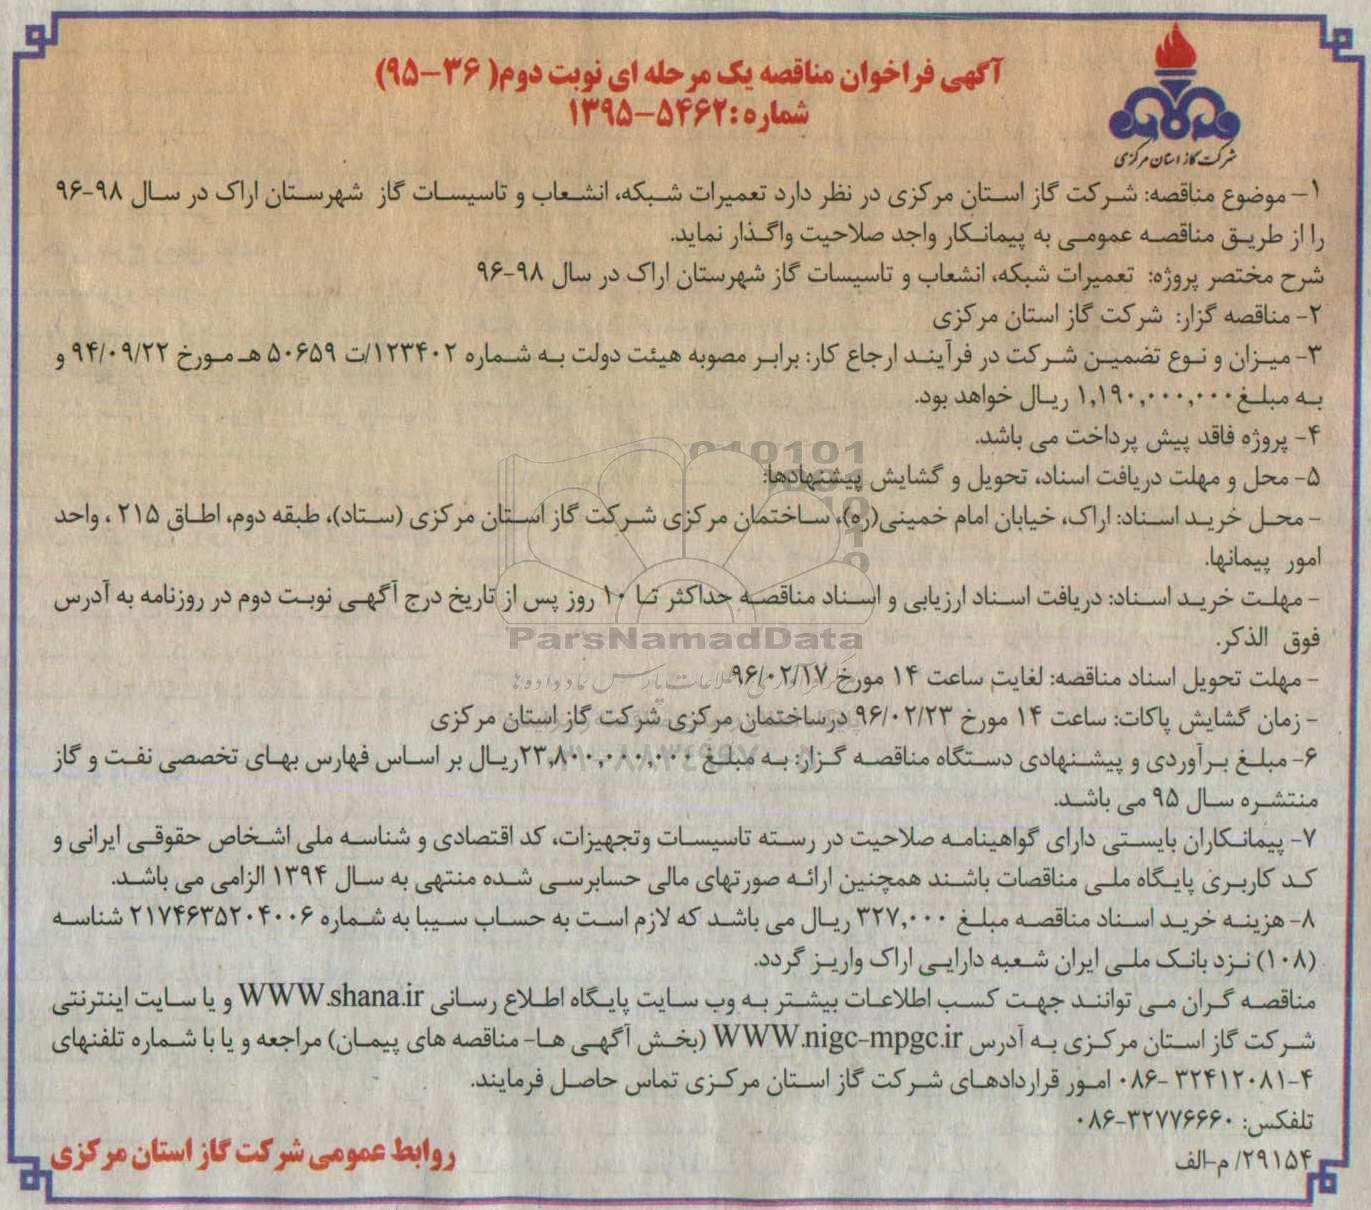 آگهی فراخوان مناقصه یک مرحله ای نوبت دوم( ۳۶-۹۵)
شماره:۵۴۶۲-۱۳۹۵
شرکت گاز استان مرکزی
۱- موضوع مناقصه: شرکت گاز استان مرکزی در نظر دارد تعمیرات شبکه، انشعاب و تاسیسات گاز شهرستان اراک در سال ۹۸-۹۶
را از طریق مناقصه عمومی به پیمانکار واجد صلاحیت واگذار نماید.
شرح مختصر پروژه: تعمیرات شبکه، انشعاب و تاسیسات گاز شهرستان اراک در سال ۹۸-۹۶
۲- مناقصه گزار: شرکت گاز استان مرکزی
۳- میزان و نوع تضمین شرکت در فرآیند ارجاع کار: برابر مصوبه هیئت دولت به شماره ۱۲۳۴۰۲/ت ۵۰۶۵۹ هـ مورخ ۹۴/۰۹/۲۲ و
به مبلغ ۱,۱۹۰,۰۰۰,۰۰۰ ریال خواهد بود.
۴- پروژه فاقد پیش پرداخت می باشد.
۵- محل و مهلت دریافت اسناد، تحویل و گشایش پیشنهادها:
- محل خرید اسناد: اراک، خیابان امام خمینی(ره)، ساختمان مرکزی شرکت گاز استان مرکزی (ستاد)، طبقه دوم، اطاق ۲۱۵ ، واحد
امور پیمانها.
- مهلت خرید اسناد: دریافت اسناد ارزیابی و اسناد مناقصه حداکثر تا ۱۰ روز پس از تاریخ درج آگهی نوبت دوم در روزنامه به آدرس
فوق الذکر.
ParsNamadData
- مهلت تحویل اسناد مناقصه: لغایت ساعت ۱۴ مورخ ۹۶/۰۲/۱۷
- زمان گشایش پاکات: ساعت ۱۴ مورخ ۹۶/۰۲/۲۳ درساختمان مرکزی شرکت گاز استان مرکزی
۶- مبلغ برآوردی و پیشنهادی دستگاه مناقصه گزار: به مبلغ ۲۳,۸۰۰,۰۰۰,۰۰۰ریال بر اساس فهارس بهای تخصصی نفت و گاز
منتشره سال ۹۵ می باشد.
۷- پیمانکاران بایستی دارای گواهینامه صلاحیت در رسته تاسیسات وتجهیزات، کد اقتصادی و شناسه ملی اشخاص حقوقی ایرانی و
کد کاربری پایگاه ملی مناقصات باشند همچنین ارائه صورتهای مالی حسابرسی شده منتهی به سال ۱۳۹۴ الزامی می باشد.
۸- هزینه خرید اسناد مناقصه مبلغ ۳۲۷,۰۰۰ ریال می باشد که لازم است به حساب سیبا به شماره ۲۱۷۴۶۳۵۲۰۴۰۰۶ شناسه
(۱۰۸) نزد بانک ملی ایران شعبه دارایی اراک واریز گردد.
مناقصه گران می توانند جهت کسب اطلاعات بیشتر به وب سایت پایگاه اطلاع رسانی WWW.shana.ir و یا سایت اینترنتی
شرکت گاز استان مرکزی به آدرس WWW.nigc-mpgc.ir (بخش آگهی ها- مناقصه های پیمان) مراجعه و یا با شماره تلفنهای
۴-۳۲۴۱۲۰۸۱ -۰۸۶ امور قراردادهای شرکت گاز استان مرکزی تماس حاصل فرمایند.
تلفکس: ۳۲۷۷۶۶۶۰-۰۸۶
۲۹۱۵۴/ م-الف
روابط عمومی شرکت گاز استان مرکزی